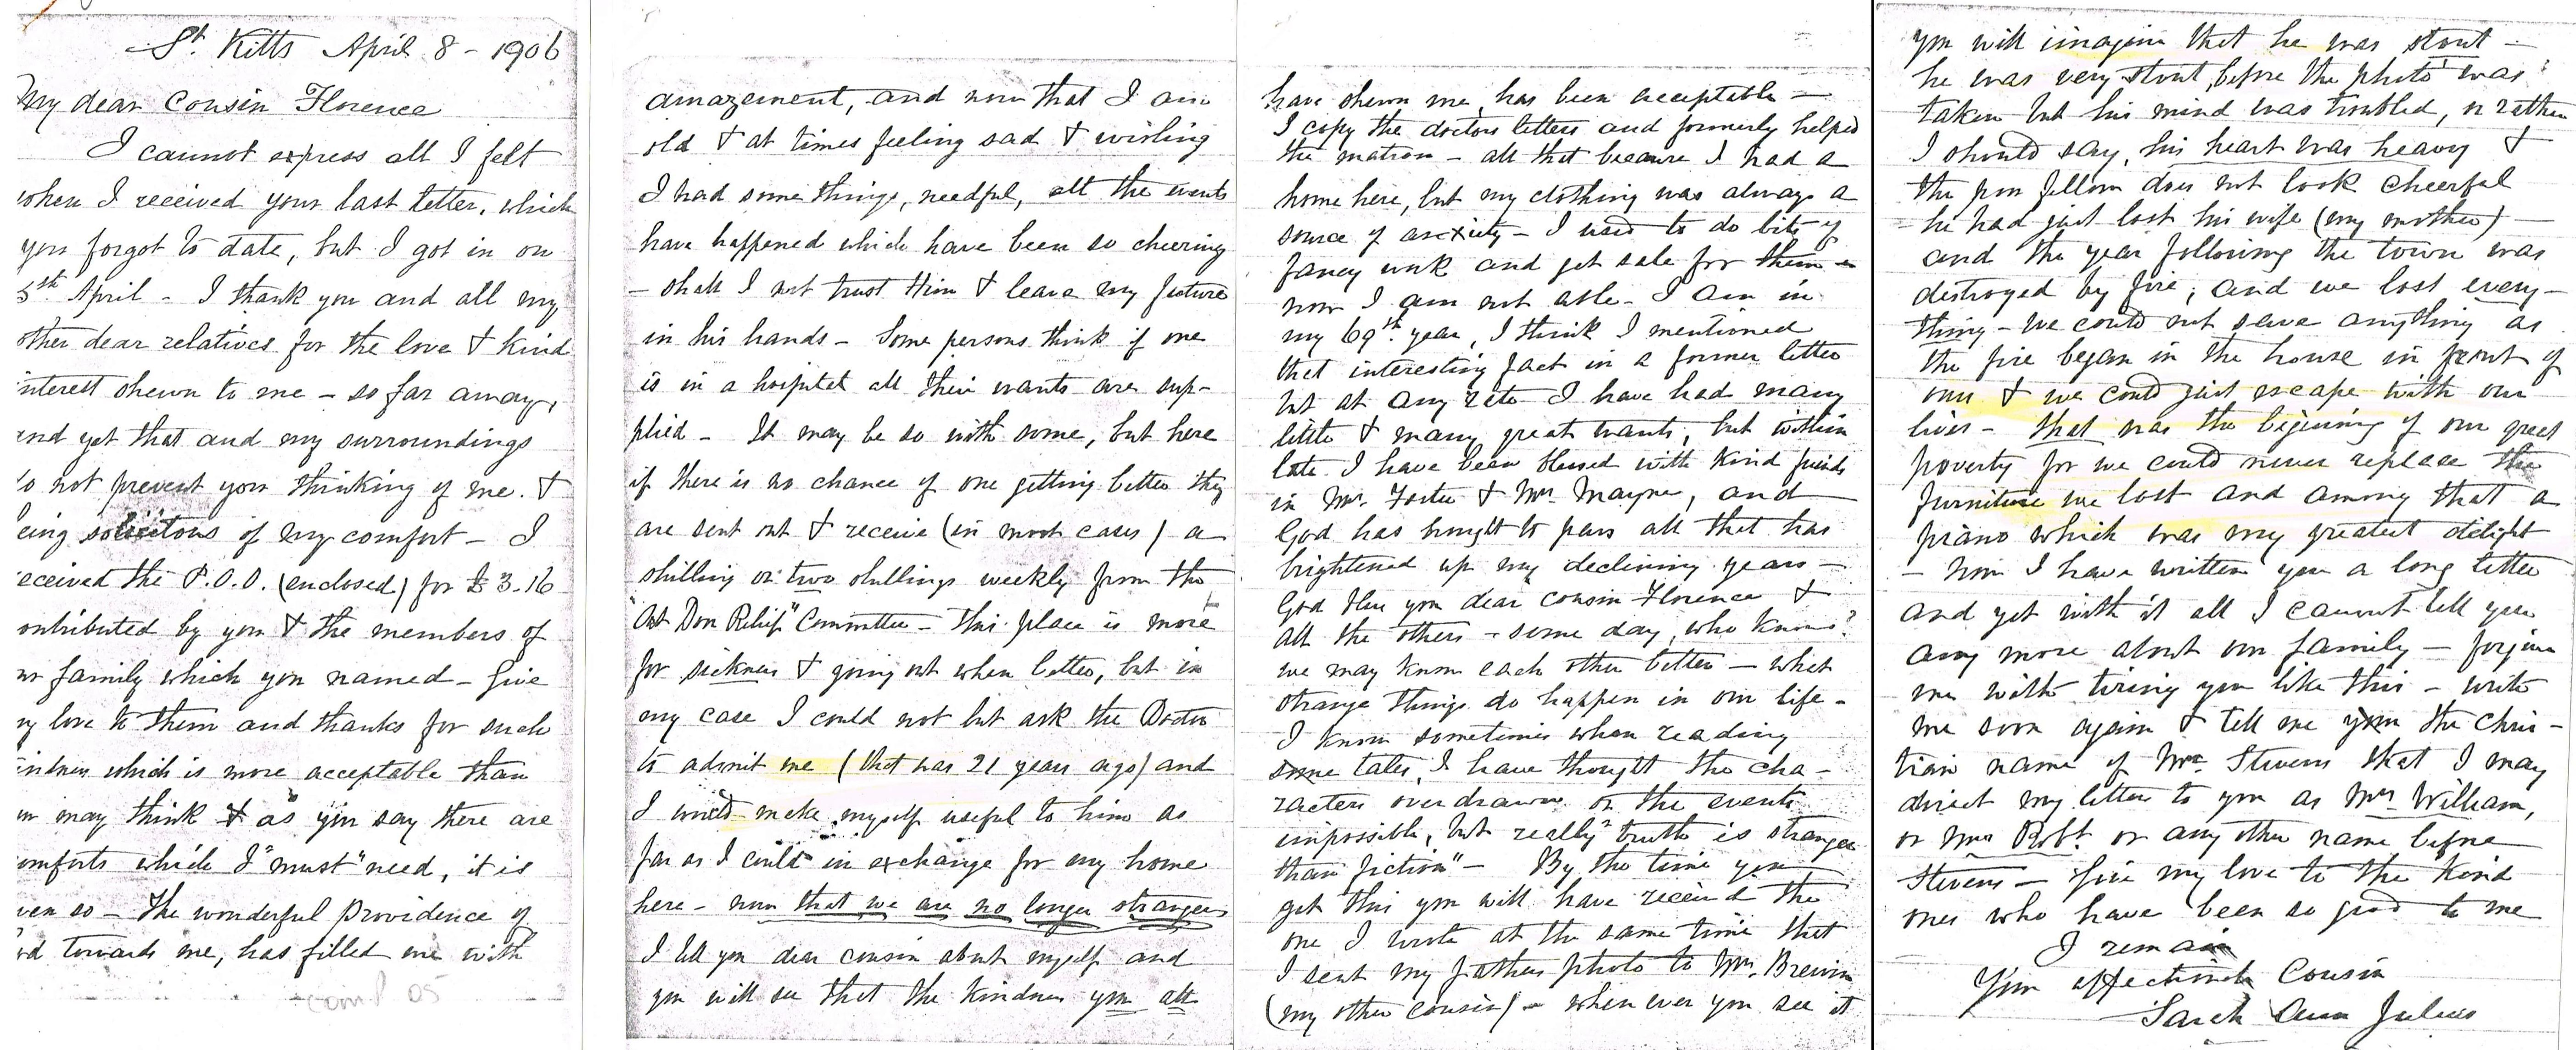 St. Kitts April 8 - 1906
My dear Cousin Florence
I cannot express all I felt
when I received your last letter, which
you forgot to date, but I got in on
5th April - I thank you and all my
other dear relatives for the love & kind
interest shewn to me - so far away,
and yet that and my surroundings
do not prevent your thinking of me. &
eing solicitous of my comfort - I
eceived the P.O.O. (enclosed) for £3.16
ontributed by you & the members of
ur family which you named - Give
my love to them and thanks for such
indness which is more acceptable than
ou may think & as you say there are
omforts which I "must" need, it is
ven so - The wonderful Providence of
od towards me, has filled me with
cont 05
amazement, and now that I am
old & at times feeling sad & wishing
I had some things, needful, all the events
have happened which have been so cheering
- shall I not trust Him & leave my future
in his hands - Some persons think if one
is in a hospital all their wants are sup-
plied - It may be so with some, but here
if there is no chance of one getting better they
are sent out & receive (in most cases) a
shilling or two shillings weekly from the
"Out Door Relief" Committee - This place is more
for sickness & going out when better, but in
my case I could not but ask the Doctor
to admit me (that was 21 years ago) and
I would make myself useful to him as
far as I could in exchange for my home
here - now that we are no longer strangers
I tell you dear cousin about myself and
you will see that the kindness you all
have shewn me, has been acceptable -
I copy the doctors letters and formerly helped
the matron - all that because I had a
home here, but my clothing was always a
source of anxiety - I used to do bits of
fancy work and get sale for them -
now I am not able - I am in
my 69th. year, I think I mentioned
that interesting fact in a former letter
but at any rate I have had many
little & many great wants, but within
late I have been blessed with kind friends
in Mr. Foster & Mrs. Mayne, and
God has brought to pass all that has
brightened up my declining years -
God bless you dear cousin Florence &
all the others - some day, who knows?
we may know each other better - what
strange things do happen in our life -
I know sometimes when reading
some tales, I have thought the cha-
racters overdrawn or the events
impossible, but really "truth is stranger
than fiction" - By the time you
get this you will have received the
one I wrote at the same time that
I sent my fathers photo to Mrs. Brewin
(my other cousin) - when ever you see it
you will imagine that he was stout -
he was very stout, before the photo was
taken but his mind was troubled, or rather
I should say, his heart was heavy &
the poor fellow does not look cheerful
- he had just lost his wife (my mother) -
and the year following the town was
destroyed by fire, and we lost every-
thing - we could not save anything as
the fire began in the house in front of
ours & we could just escape with our
lives - that was the begining of our great
poverty for we could never replace the
furniture we lost and among that a
piano which was my greatest delight
- Now I have written you a long letter
and yet with it all I cannot tell you
any more about our family - forgive
me with tiring you like this - write
me soon again & tell me the Chris-
tian name of Mr. Stevens that I may
direct my letters to you as Mrs William,
or Mrs Robt. or any other name before
Stevens - Give my love to the kind
ones who have been so good to me
I remain
Your affectionate Cousin
Sarah Ann Julius